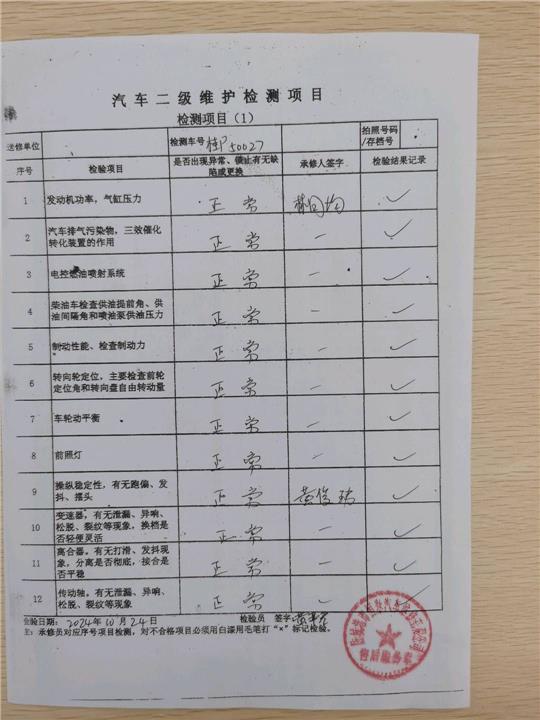 汽车二级维护检测项目
检测项目（1）
送修单位 检测车号 桂P50027 拍照号码/存档号
序号 检验项目 是否出现异常、做止有无缺陷或更换 承修人签字 检验结果记录
1 发动机功率，气缸压力 正常 ✓
2 汽车排气污染物，三效催化转化装置的作用 正常 — ✓
3 电控燃油喷射系统 正常 — ✓
4 柴油车检查供油提前角、供油间隔角和喷油泵供油压力 正常 — ✓
5 制动性能、检查制动力 正常 — ✓
6 转向轮定位，主要检查前轮定位角和转向盘自由转动量 正常 — ✓
7 车轮动平衡 正常 — ✓
8 前照灯 正常 — ✓
9 操纵稳定性，有无跑偏、发抖、摆头 正常 ✓
10 变速器，有无泄漏、异响、松脱、裂纹等现象，换档是否轻便灵活 正常 — ✓
11 离合器，有无打滑、发抖现象，分离是否彻底，接合是否平稳 正常 — ✓
12 传动轴，有无泄漏、异响、松脱、裂纹等现象 正常 — ✓
检验日期： 2024年10月24日 检验员 签字：
注：承修员对应序号项目检测，对不合格项目必须用白漆用毛笔打“×”标记检验。
售后服务章